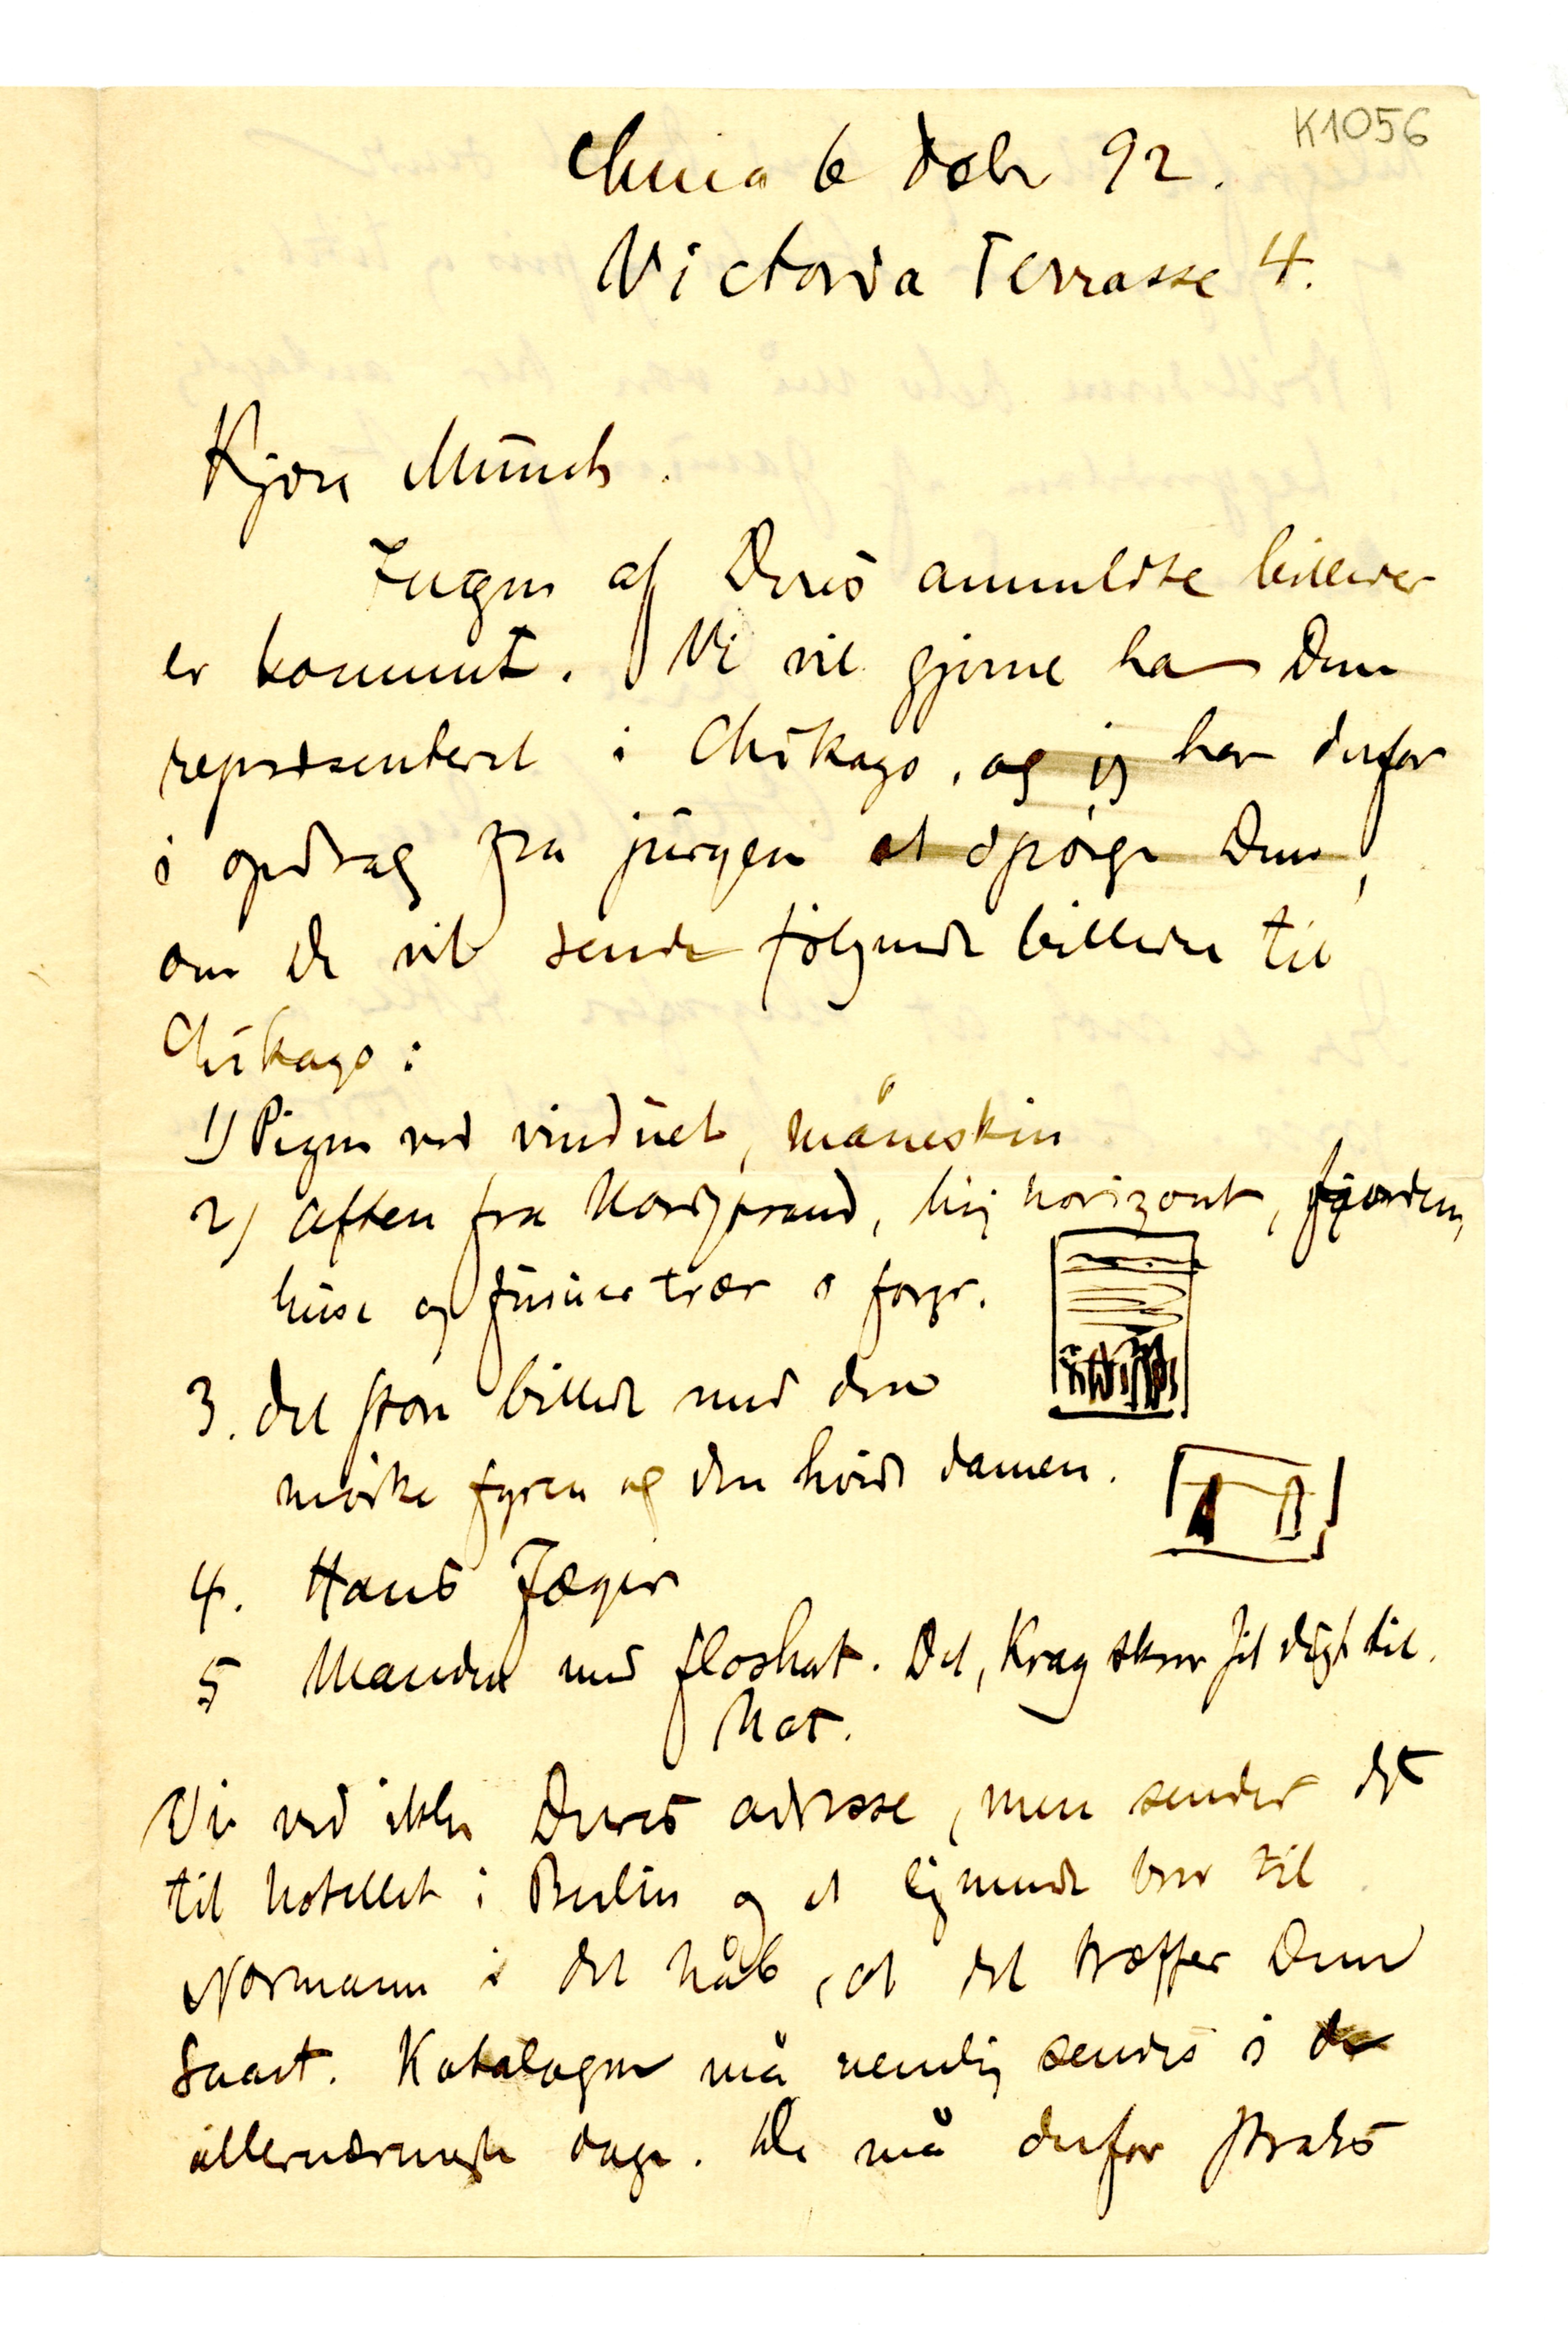 K1056
Chria 6 Dcbr 92.
Victoria Terrasse 4.
Kjære Munch.
Ingen af Deres anmeldte billeder
er kommet. Vi vil gjerne ha Dem
repræsenteret i Chikago, og jeg har derfor
i opdrag fra juryen at spørge Dem,
om De vil sende følgende billeder til
Chikago:
1) Pigen ved vinduet, måneskin
2) Aften fra Nordstrand, høj horizont, fjorden,
huse og furuer trær i forgr.
3. det store billede med den
mørke fyren og den hvide damen.
4. Hans Jæger
5 Manden med floshat. Det, Krag skrev sit digt til.
Nat.
Vi ved ikke Deres adresse, men sender det
til hotellet i Berlin og et lignende brev til
Normann i det håb, at det træffer Dem
snart. Katalogen må nemlig sendes i de
allernærmeste dage. De må derfor straks